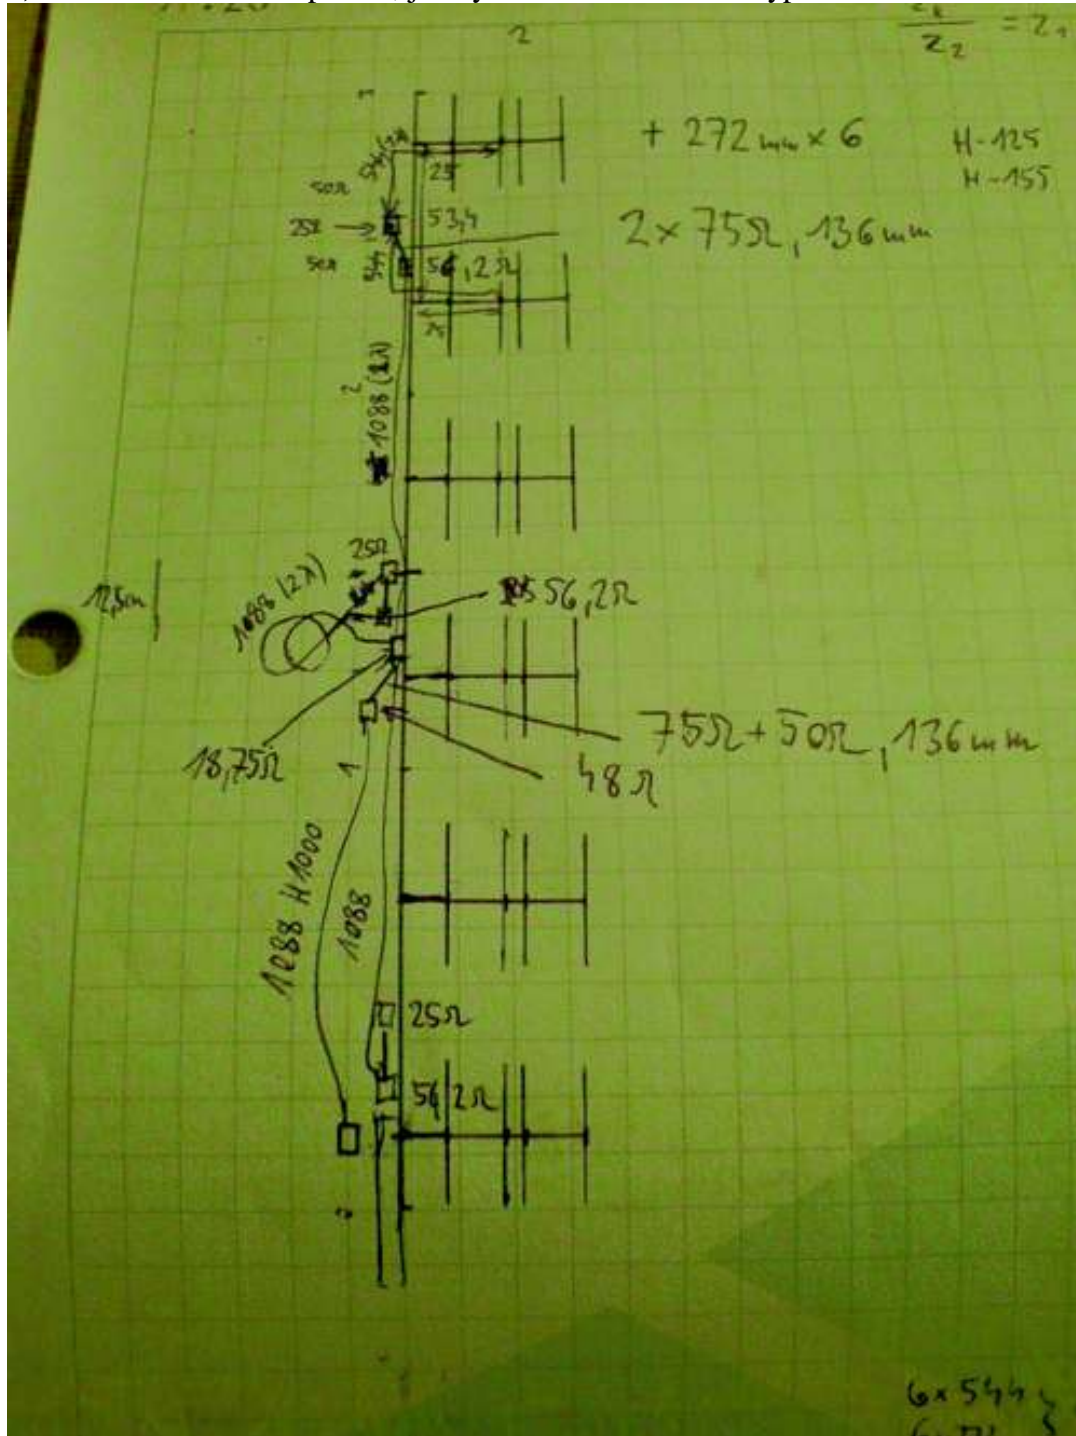 2
Z₂ = Z₁
+ 272 mm x 6
H-125
H-155
544 (2λ)
50Ω
25
25Ω
53,4
2x 75Ω, 136mm
50Ω
544
56,2Ω
25
2
1088 (2λ)
25Ω
12,5cm
1088 (2λ)
56,2Ω
75Ω + 50Ω, 136mm
18,75Ω
48Ω
1
1088 H1000
1088
25Ω
56,2Ω
6x544